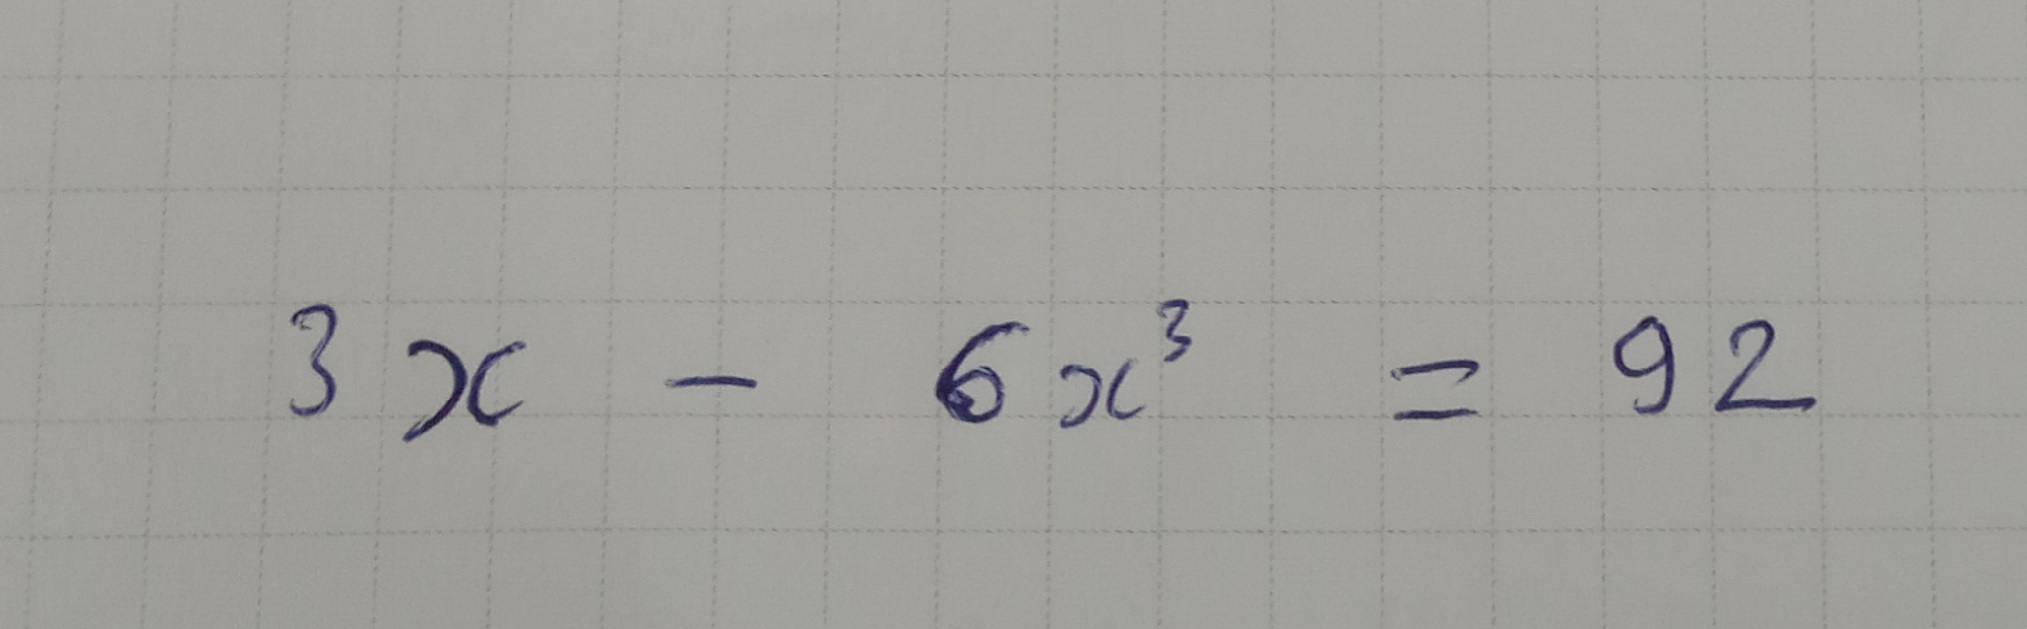 3x - 6x³ = 92